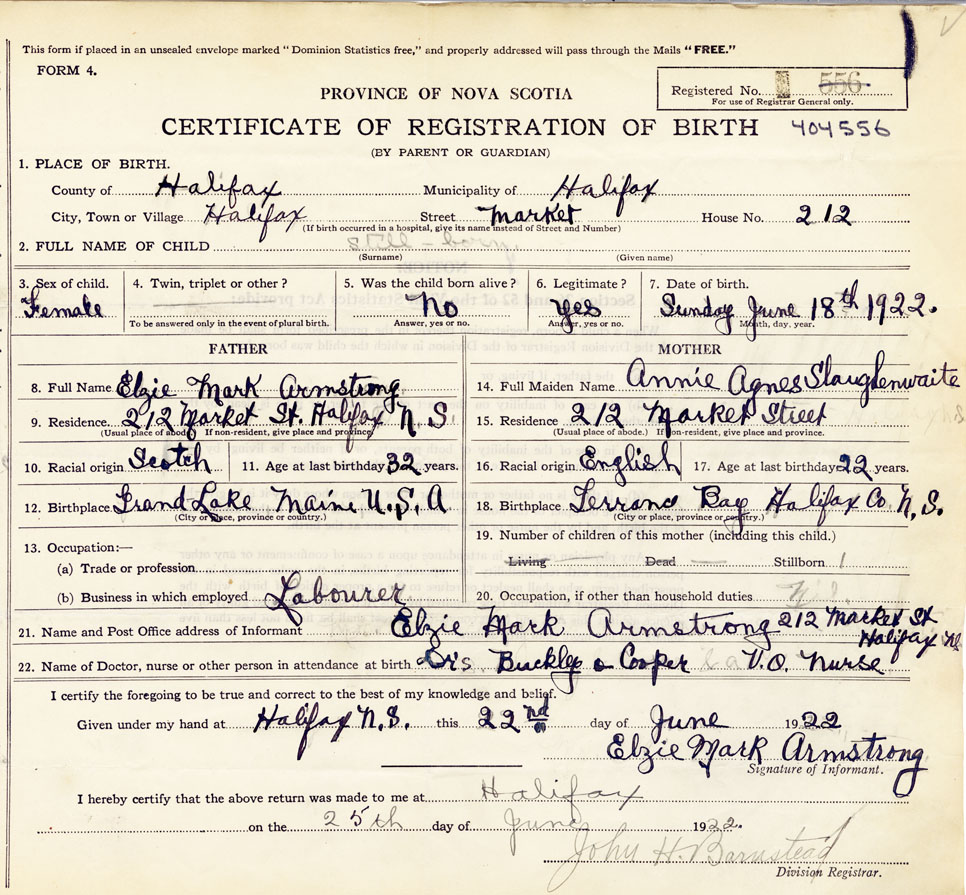 This form if placed in an unsealed envelope marked "Dominion Statistics free," and properly addressed will pass through the Mails "FREE."
FORM 4.
Registered No. 556
For use of Registrar General only.
PROVINCE OF NOVA SCOTIA
CERTIFICATE OF REGISTRATION OF BIRTH 404556
(BY PARENT OR GUARDIAN)
1. PLACE OF BIRTH.
County of Halifax Municipality of Halifax
City, Town or Village Halifax Street Market House No. 212
(If birth occurred in a hospital, give its name instead of Street and Number)
2. FULL NAME OF CHILD still-born
(Surname) (Given name)
3. Sex of child. 4. Twin, triplet or other? 5. Was the child born alive? 6. Legitimate? 7. Date of birth.
Female No Yes Sunday June 18th 1922.
To be answered only in the event of plural birth. Answer, yes or no. Answer, yes or no. Month, day, year.
FATHER MOTHER
8. Full Name Elzie Mark Armstrong 14. Full Maiden Name Annie Agnes Slaughenwaite
9. Residence. 212 Market St. Halifax N.S 15. Residence 212 Market Street
(Usual place of abode) If non-resident, give place and province. (Usual place of abode.) If non-resident, give place and province.
10. Racial origin Scotch 11. Age at last birthday 32 years. 16. Racial origin English 17. Age at last birthday 22 years.
12. Birthplace Grand Lake Maine U.S.A 18. Birthplace Terrance Bay Halifax Co. N.S.
(City or place, province or country.) (City or place, province or country.)
13. Occupation:— 19. Number of children of this mother (including this child.)
(a) Trade or profession Living Dead Stillborn 1
(b) Business in which employed Labourer 20. Occupation, if other than household duties
21. Name and Post Office address of Informant Elzie Mark Armstrong 212 Market St Halifax NS
22. Name of Doctor, nurse or other person in attendance at birth Drs. Buckley & Cooper V.O. Nurse
I certify the foregoing to be true and correct to the best of my knowledge and belief.
Given under my hand at Halifax N.S. this 22nd day of June 1922
Elzie Mark Armstrong
Signature of Informant.
I hereby certify that the above return was made to me at Halifax
on the 25th day of June 1922.
John H. Barnstead
Division Registrar.